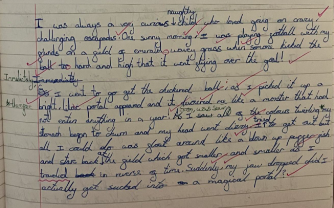 naughty
I was always a very curious & child who loved going on crazy,
challenging escapades. One sunny morning I was playing football with my
friends on a field of crunchy, wavy grass when someone kicked the
ball too hard and high that it went flying over the goal!
Immediately Immediately
So I went to go get the ball; as I picked it up a
bright blue portal appeared and it devoured me like a monster that had
not eaten anything in a year! As I saw all the colours my
stomach began to churn and my head went dizzy. to get out but
all I could do was float around like a blown up
and stare back at the field which got smaller and smaller as I
travelled in reverse of time. Suddenly my jaw dropped and I
actually got sucked into a magical portal!